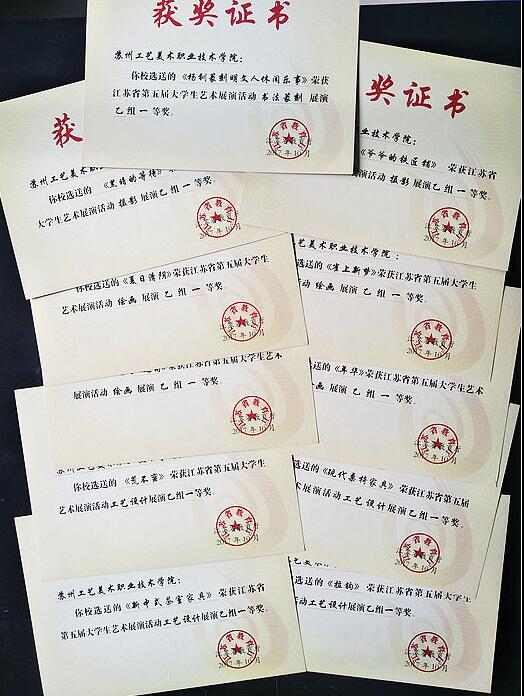 获奖证书
苏州工艺美术职业技术学院：
你校选送的《杨利篆刻明文人休闲乐事》荣获
江苏省第五届大学生艺术展演活动 书法篆刻 展演
乙组 一 等奖。
2017年10月
获
苏州工艺美术职
你校选送的 《黑暗的等待》
大学生艺术展演活动 摄影 展演乙组 一 等奖。
2017年10月
奖证书
业技术学院：
《爷爷的铁匠铺》 荣获江苏省
演活动 摄影 展演 乙组 一 等奖。
2017年10月
你校选送的《夏日清阴》荣获江苏省第五届大学生
艺术展演活动 绘画 展演 乙 组 一 等奖。
2017年10月
艺美术职业技术学院：
选送的《崔上新梦》荣获江苏省第五届大学生
演活动 绘画 展演 乙 组 一 等奖。
2017年10月
荣获江苏省第五届大学生艺术
展演活动 绘画 展演 乙 组 一 等奖。
2017年10月
送的《年华》荣获江苏省第五届大学生艺术
绘画 展演 乙 组 一 等奖。
2017年10月
你校选送的 《荒不蛮》 荣获江苏省第五届大学生
艺术展演活动工艺设计展演乙组一等奖。
2017年10月
选送的《现代桑特家具》 荣获江苏省第五届
术展演活动工艺设计展演乙组一等奖。
2017年10月
苏州工艺美术职业技术学院：
你校选送的《新中式茶室家具》 荣获江苏省
第五届大学生艺术展演活动工艺设计展演乙组一等奖。
2017年10月
选送的《拉钩》 荣获江苏省第五届大学生
活动工艺设计展演乙组一等奖。
2017年10月